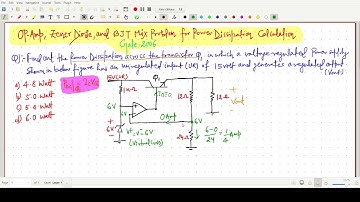 OP-Amp, Zener Diode, and BJT Mix Problem for Power Dissipation Calculation
Gate-2006
Q) Find out the Power Dissipation across the transistor Q1 in which a voltage regulated Power Supply
Shown in below figure has an unregulated input (UR) of 15 volt and generates a regulated output
(Vout)
a) 4.8 Watt
b) 5.0 Watt
c) 5.4 Watt
d) 6.0 Watt
15V (UR)
Q1
1kΩ
12kΩ
12Ω
+
Vout
-
6V
6V
0Amp
6V
V+=V-=6V
(Virtual Gnd)
24kΩ
6-0
24
= 1/4 Amp